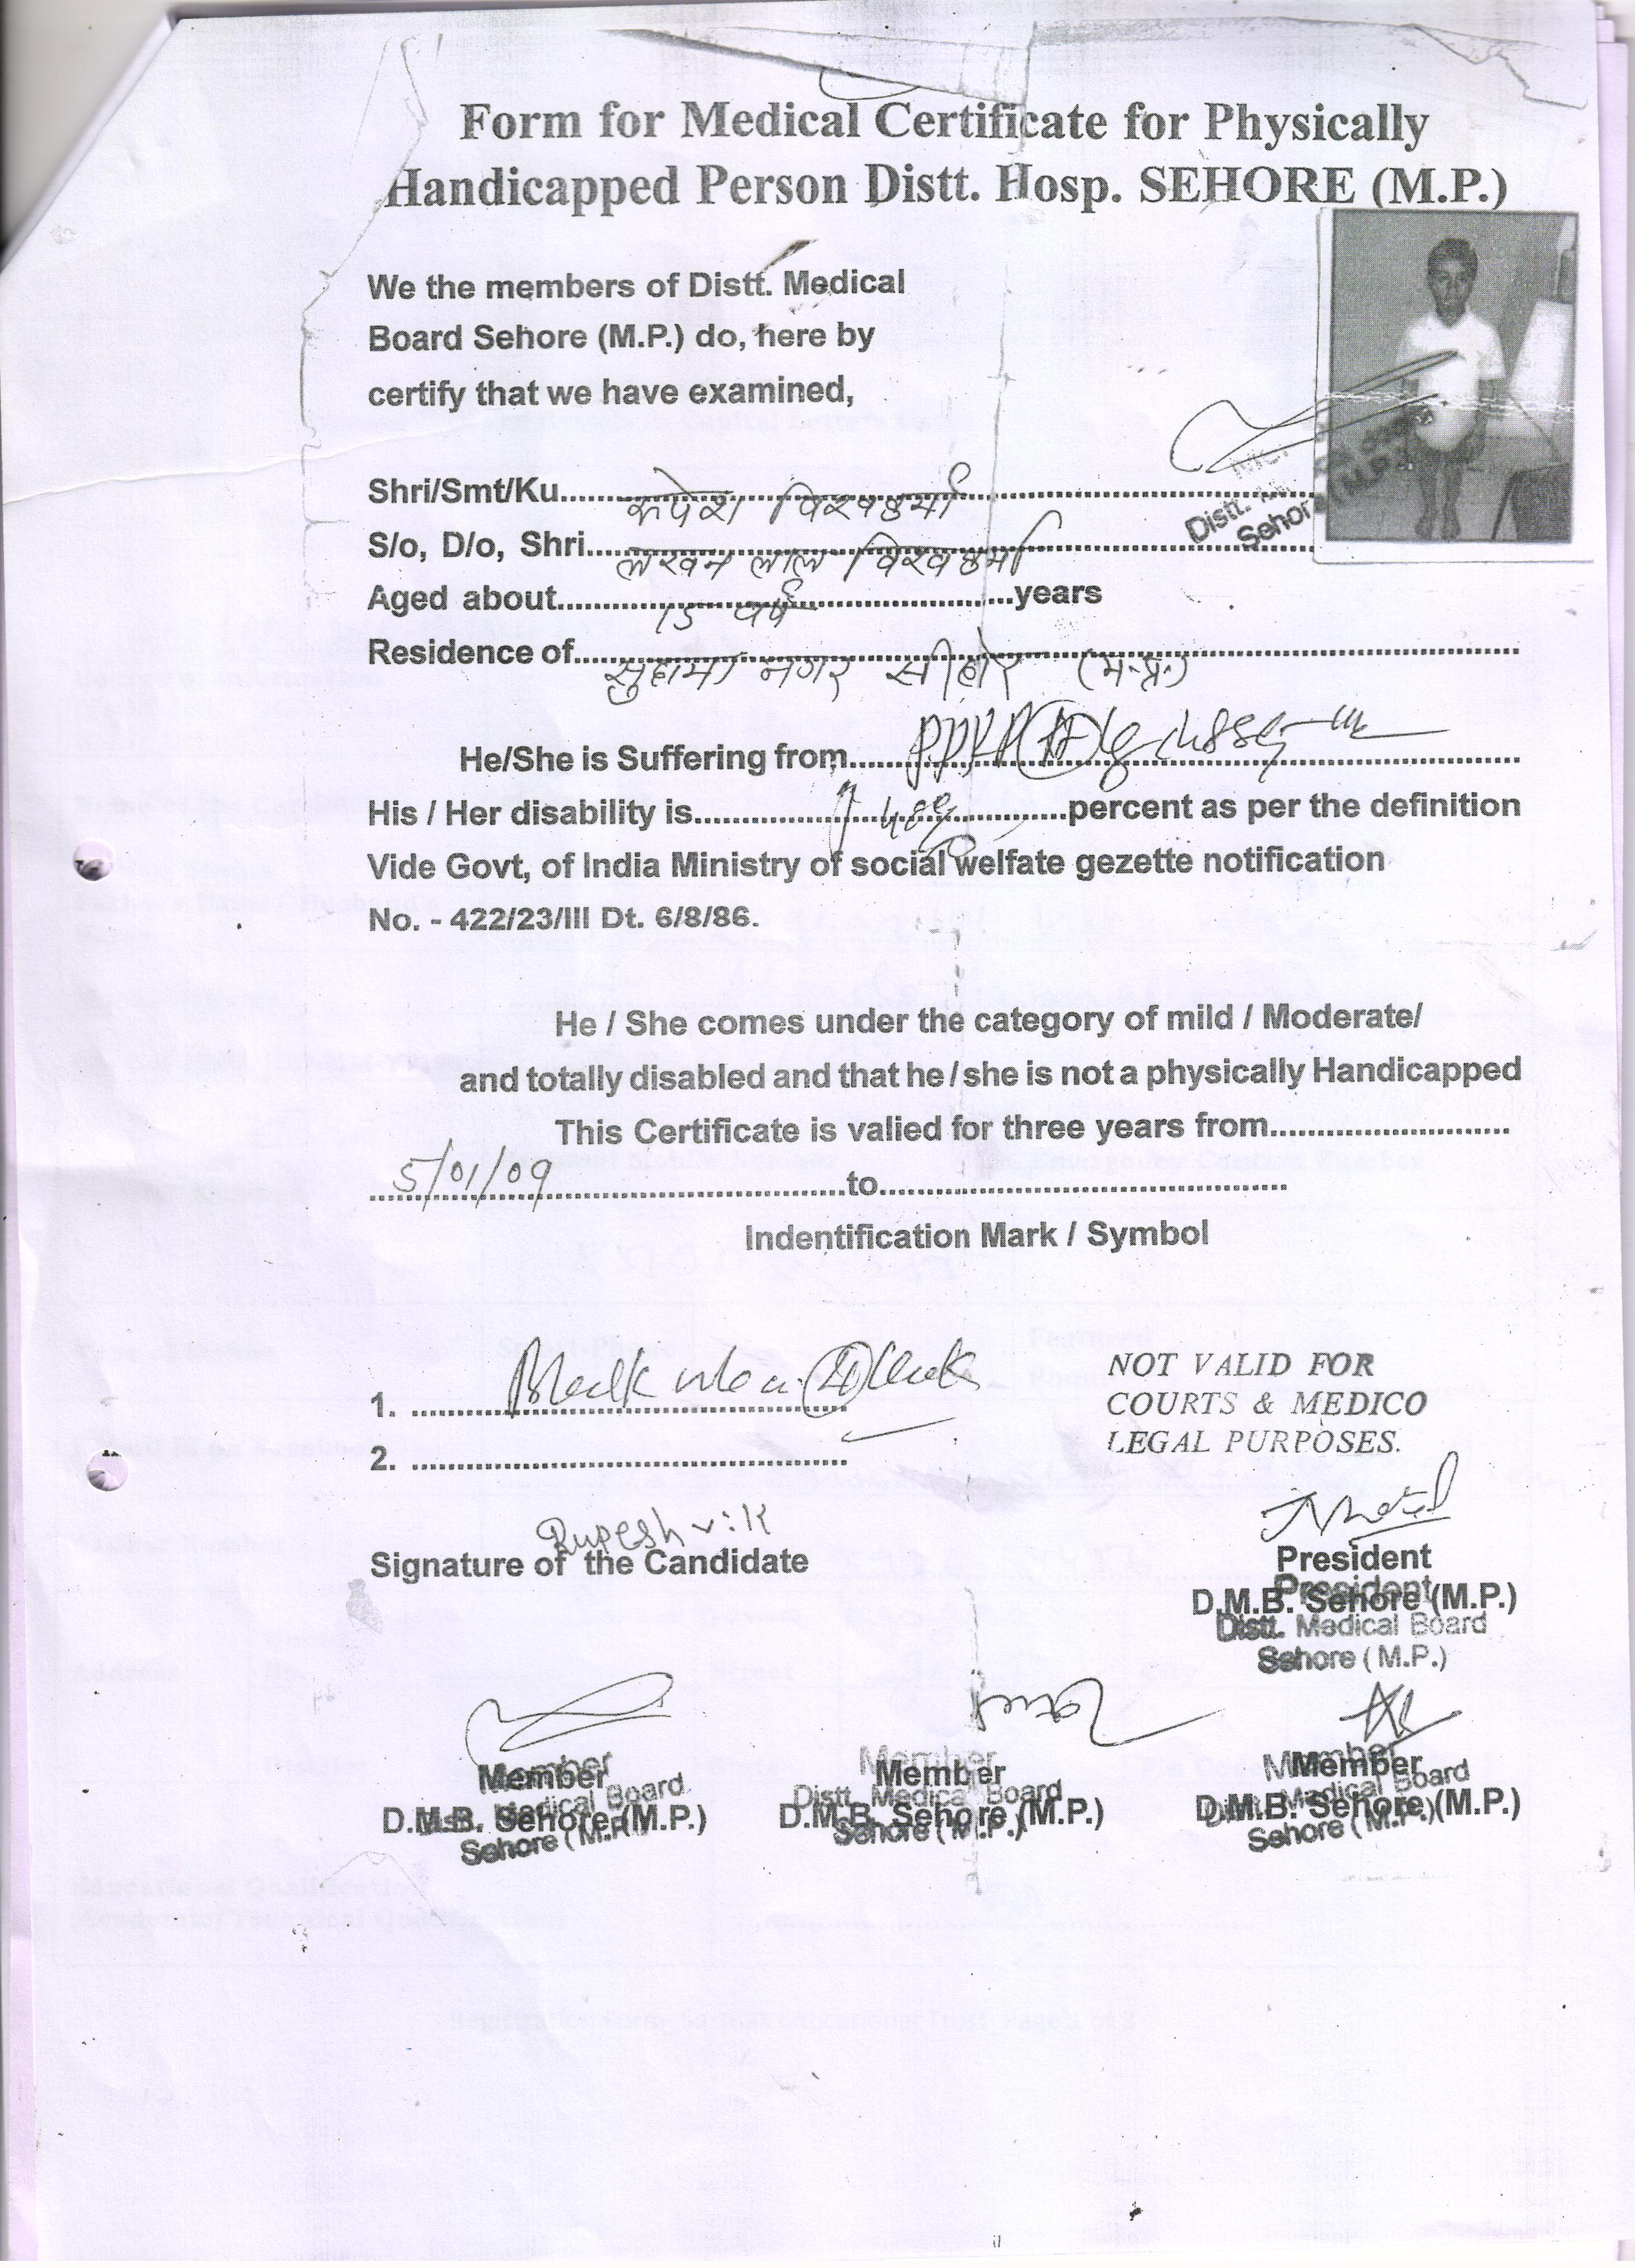 Form for Medical Certificate for Physically
Handicapped Person Distt. Hosp. SEHORE (M.P.)
We the members of Distt. Medical
Board Sehore (M.P.) do, here by
certify that we have examined,
Shri/Smt/Ku.....रुपेश विश्वकर्मा
S/o, D/o, Shri.....लखन लाल विश्वकर्मा
Aged about.....15 वर्ष.....years
Residence of.....सुदामा नगर सीहोर (म.प्र.)
Distt.
Sehor
He/She is Suffering from.....PPRP
His / Her disability is.....48%.....percent as per the definition
Vide Govt, of India Ministry of social welfate gezette notification
No. - 422/23/III Dt. 6/8/86.
He / She comes under the category of mild / Moderate/
and totally disabled and that he/she is not a physically Handicapped
This Certificate is valied for three years from.....
5/01/09.....to.....
Indentification Mark / Symbol
1. Black mole
2. .....
NOT VALID FOR
COURTS & MEDICO
LEGAL PURPOSES.
Rupesh v:k
Signature of the Candidate
President
D.M.B. Sehore (M.P.)
President
Distt. Medical Board
Sehore (M.P.)
Member Member Member
D.M.B. Sehore (M.P.) D.M.B. Sehore (M.P.) D.M.B. Sehore (M.P.)
Member Member Member
Distt. Medical Board Distt. Medical Board Distt. Medical Board
Sehore (M.P.) Sehore (M.P.) Sehore (M.P.)